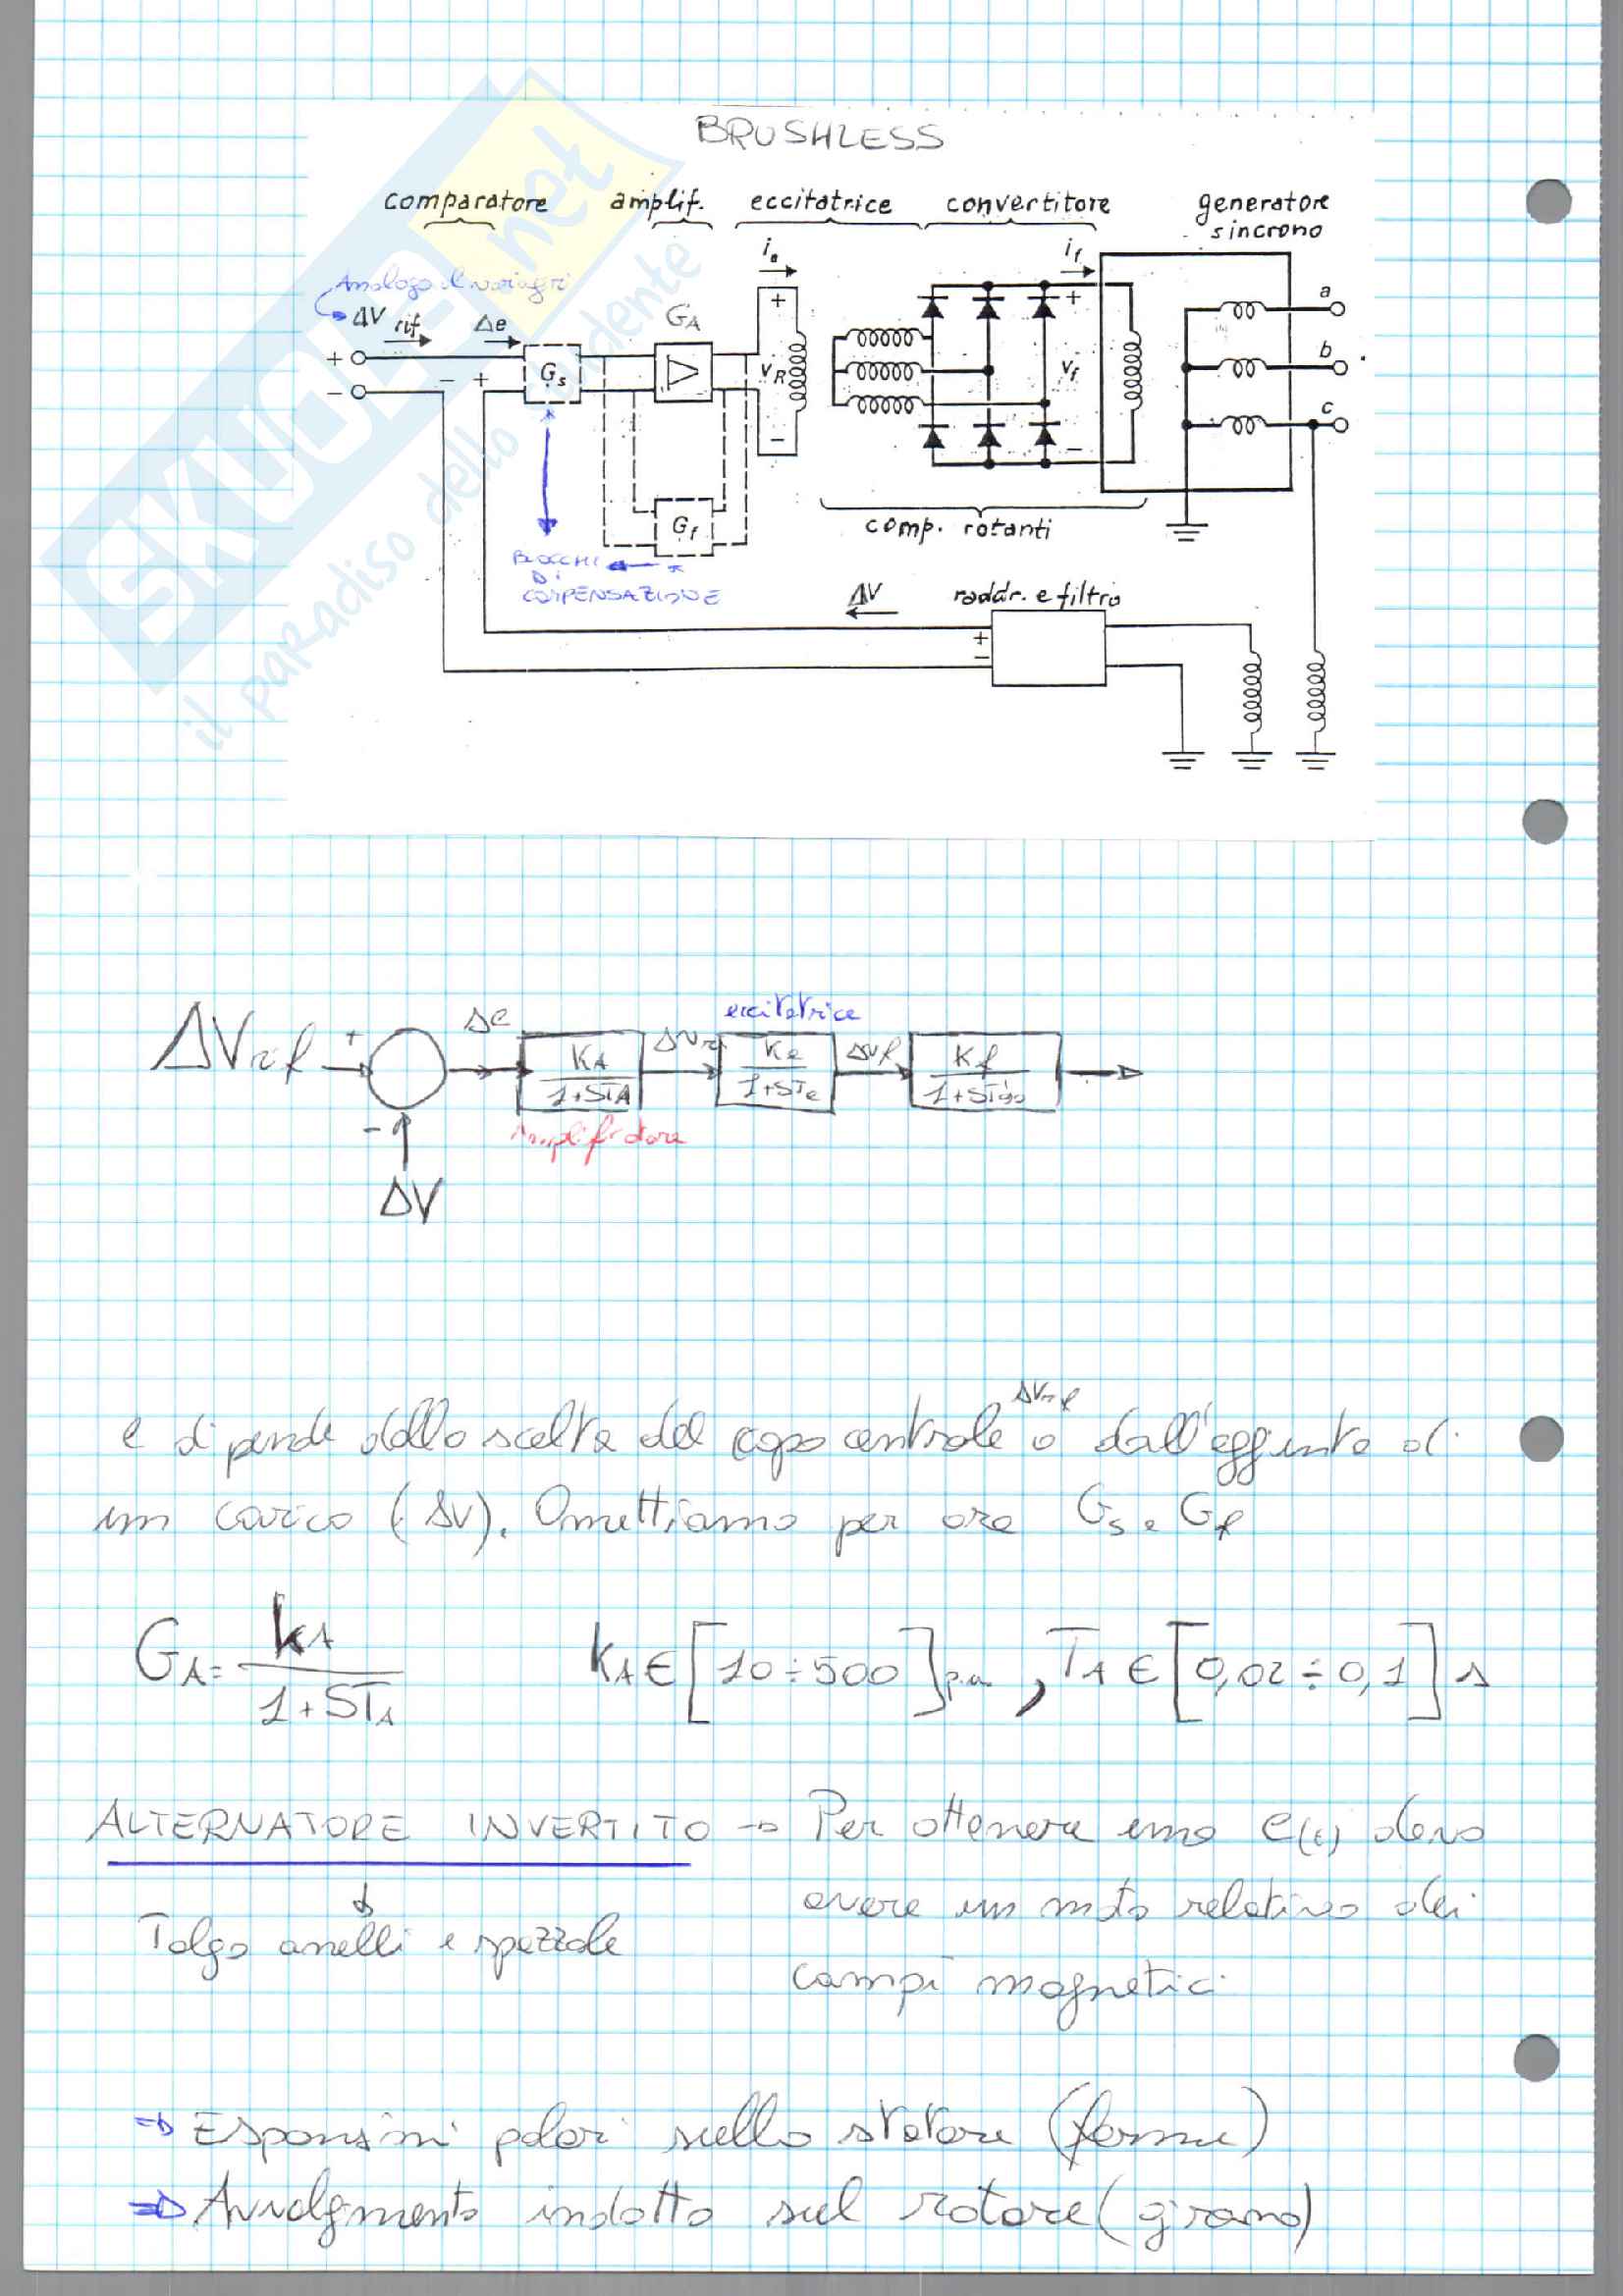 BRUSHLESS
comparatore amplif. eccitatrice convertitore generatore sincrono
Analogo
ΔV rif Δe
G_A
i_e
i_f
+
-
- +
G_s
V_R
+
-
+
v_f
-
a
b
c
G_f
comp. rotanti
BLOCCHI
DI
COMPENSAZIONE
ΔV
raddr. e filtro
+
-
SKUOLA.net
il paradiso dello studente
eccitatrice
ΔVrif + Δe K_A/(1+ST_A) ΔV_R K_e/(1+ST_e) ΔVf K_f/(1+ST'do)
Amplificatore
-
ΔV
ΔVrif
e dipende dalla scelta del capo centrale o dall'aggiunta di
un carico (ΔV). Omettiamo per ora G_s e G_f
G_A = K_A/(1+ST_A) K_A ∈ [10÷500] p.u. , T_A ∈ [0,02÷0,1] s
ALTERNATORE INVERTITO → Per ottenere una e(t) devo
avere un moto relativo dei
Tolgo anelli e spazzole
campi magnetici
⇒ Espansioni polari sullo statore (ferme)
⇒ Avvolgimento indotto sul rotore (girano)